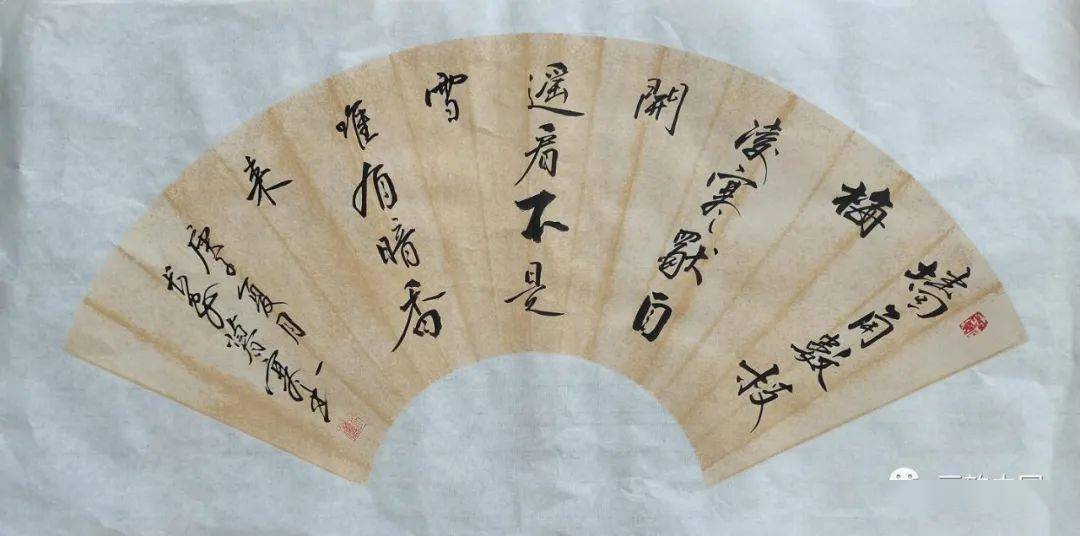 墙角數枝
梅
凌寒獨自
開
遥看不是
雪
唯有暗香
来
庚子夏月